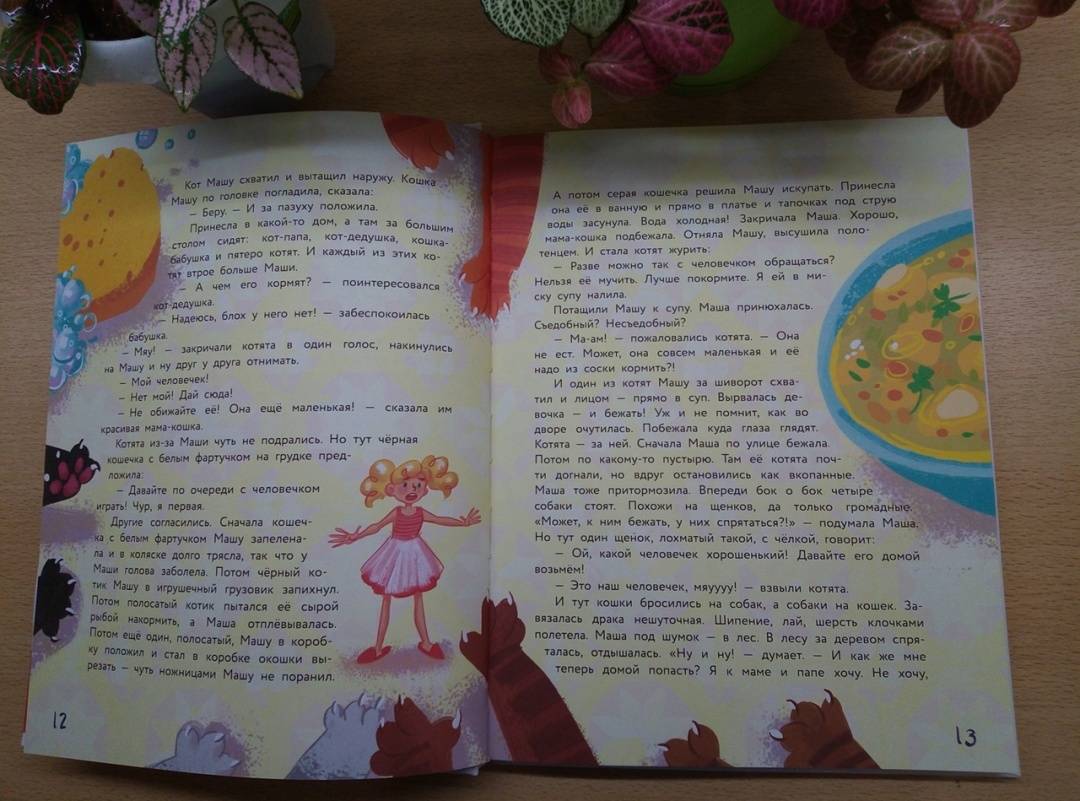 Кот Машу схватил и вытащил наружу. Кошка
Машу по головке погладила, сказала:
– Беру. – И за пазуху положила.
Принесла в какой-то дом, а там за большим
столом сидят: кот-папа, кот-дедушка, кошка-
бабушка и пятеро котят. И каждый из этих ко-
тят втрое больше Маши.
– А чем его кормят? – поинтересовался
кот-дедушка.
– Надеюсь, блох у него нет! – забеспокоилась
бабушка.
– Мяу! – закричали котята в один голос, накинулись
на Машу и ну друг у друга отнимать.
– Мой человечек!
– Нет мой! Дай сюда!
– Не обижайте её! Она ещё маленькая! – сказала им
красивая мама-кошка.
Котята из-за Маши чуть не подрались. Но тут чёрная
кошечка с белым фартучком на грудке пред-
ложила:
– Давайте по очереди с человечком
играть! Чур, я первая.
Другие согласились. Сначала кошеч-
ка с белым фартучком Машу запелена-
ла и в коляске долго трясла, так что у
Маши голова заболела. Потом чёрный ко-
тик Машу в игрушечный грузовик запихнул.
Потом полосатый котик пытался её сырой
рыбой накормить, а Маша отплёвывалась.
Потом ещё один, полосатый, Машу в короб-
ку положил и стал в коробке окошки вы-
резать – чуть ножницами Машу не поранил.
12
А потом серая кошечка решила Машу искупать. Принесла
она её в ванную и прямо в платье и тапочках под струю
воды засунула. Вода холодная! Закричала Маша. Хорошо,
мама-кошка подбежала. Отняла Машу, высушила поло-
тенцем. И стала котят журить:
– Разве можно так с человечком обращаться?
Нельзя её мучить. Лучше покормите. Я ей в ми-
ску супу налила.
Потащили Машу к супу. Маша принюхалась.
Съедобный? Несъедобный?
– Ма-ам! – пожаловались котята. – Она
не ест. Может, она совсем маленькая и её
надо из соски кормить?!
И один из котят Машу за шиворот схва-
тил и лицом – прямо в суп. Вырвалась де-
вочка – и бежать! Уж и не помнит, как во
дворе очутилась. Побежала куда глаза глядят.
Котята – за ней. Сначала Маша по улице бежала.
Потом по какому-то пустырю. Там её котята поч-
ти догнали, но вдруг остановились как вкопанные.
Маша тоже притормозила. Впереди бок о бок четыре
собаки стоят. Похожи на щенков, да только громадные.
«Может, к ним бежать, у них спрятаться?!» – подумала Маша.
Но тут один щенок, лохматый такой, с чёлкой, говорит:
– Ой, какой человечек хорошенький! Давайте его домой
возьмём!
– Это наш человечек, мяуууу! – взвыли котята.
И тут кошки бросились на собак, а собаки на кошек. За-
вязалась драка нешуточная. Шипение, лай, шерсть клочками
полетела. Маша под шумок – в лес. В лесу за деревом спря-
талась, отдышалась. «Ну и ну! – думает. – И как же мне
теперь домой попасть? Я к маме и папе хочу. Не хочу,
13